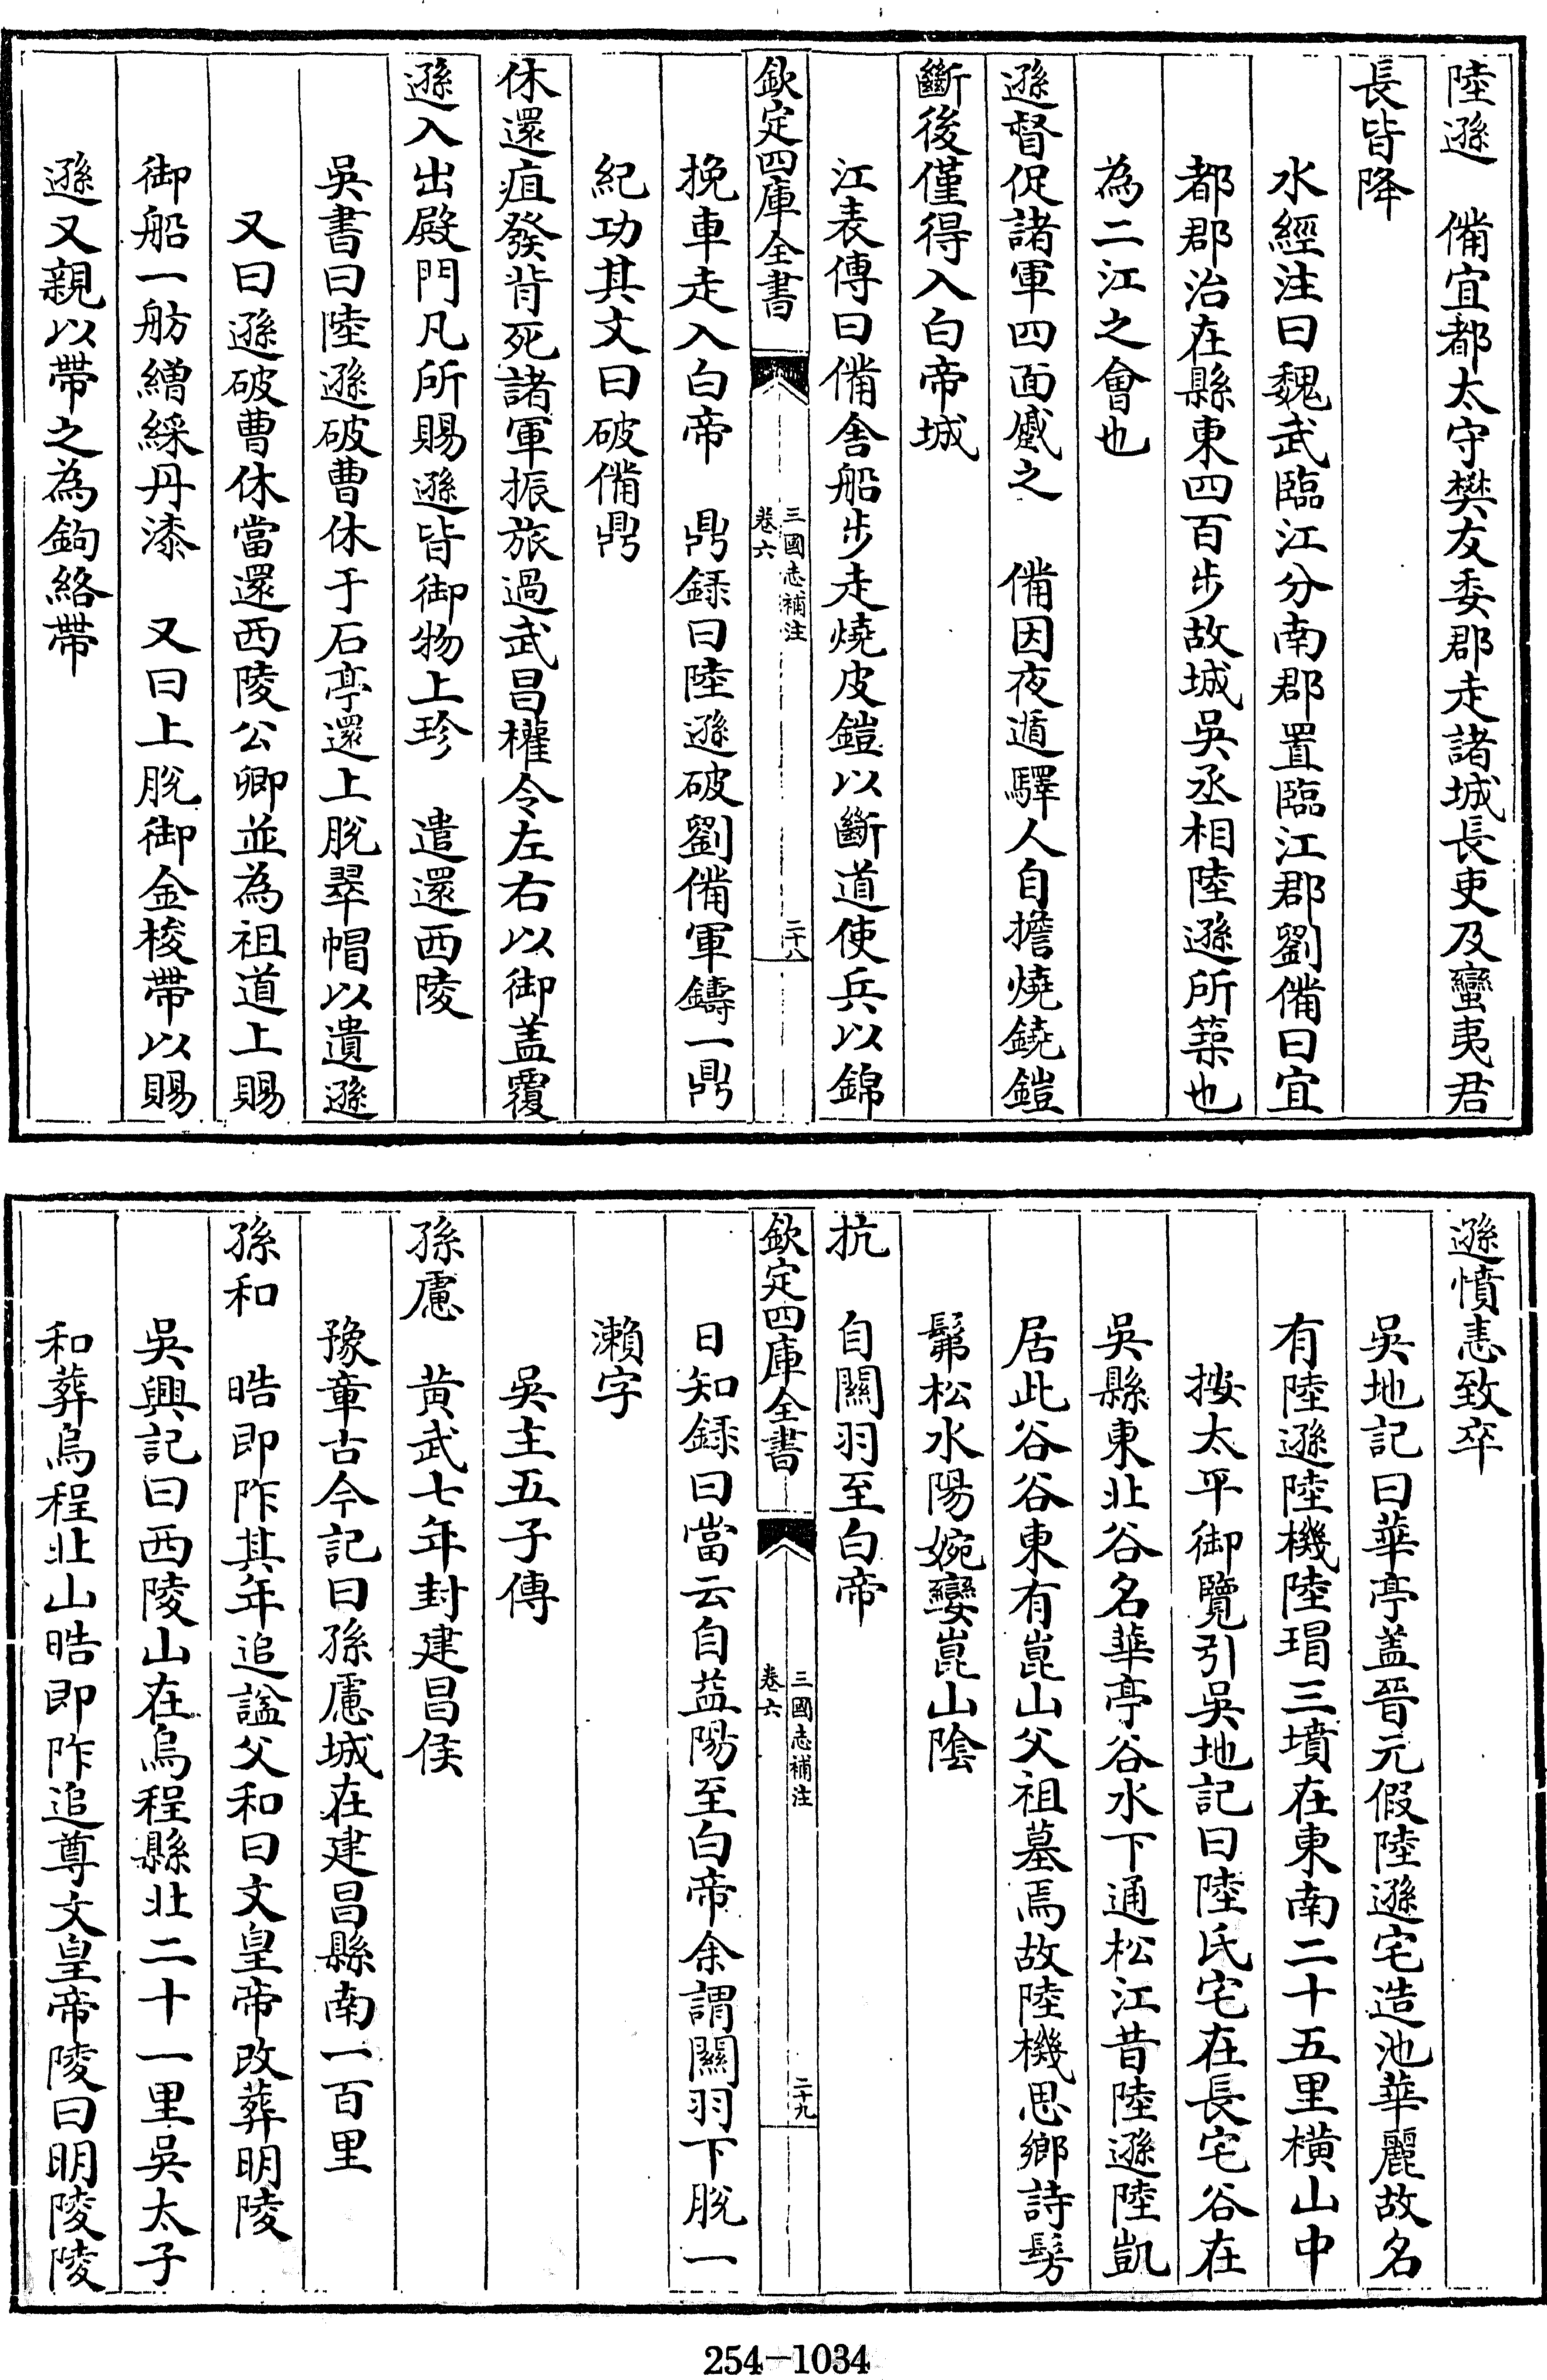 陸遜　備宜都太守樊友委郡走諸城長吏及蠻夷君
長皆降
水經注曰魏武臨江分南郡置臨江郡劉備曰宜
都郡治在縣東四百步故城吳丞相陸遜所築也
為二江之會也
遜督促諸軍四面蹙之　備因夜遁驛人自擔燒鐃鎧
斷後僅得入白帝城
江表傳曰備舍船步走燒皮鎧以斷道使兵以錦
欽定四庫全書
三國志補注
卷六
二十八
挽車走入白帝　鼎録曰陸遜破劉備軍鑄一鼎
紀功其文曰破備鼎
休還疽發背死諸軍振旅過武昌權令左右以御盖覆
遜入出殿門凡所賜遜皆御物上珍　遣還西陵
吳書曰陸遜破曹休于石亭還上脫翠帽以遺遜
又曰遜破曹休當還西陵公卿並為祖道上賜
御船一舫繒綵丹漆　又曰上脫御金梭帶以賜
遜又親以帶之為鉤絡帶
遜憤恚致卒
吳地記曰華亭盖晉元假陸遜宅造池華麗故名
有陸遜陸機陸瑁三墳在東南二十五里橫山中
按太平御覽引吳地記曰陸氏宅在長宅谷在
吳縣東北谷名華亭谷水下通松江昔陸遜陸凱
居此谷谷東有崑山父祖墓焉故陸機思鄉詩髣
髴松水陽婉孌崑山陰
抗　自關羽至白帝
欽定四庫全書
三國志補注
卷六
二十九
日知録曰當云自益陽至白帝余謂關羽下脫一
瀨字
吳主五子傳
孫慮　黃武七年封建昌侯
豫章古今記曰孫慮城在建昌縣南一百里
孫和　晧即阼其年追謚父和曰文皇帝改葬明陵
吳興記曰西陵山在烏程縣北二十一里吳太子
和葬烏程北山晧即阼追尊文皇帝陵曰明陵陵
254-1034